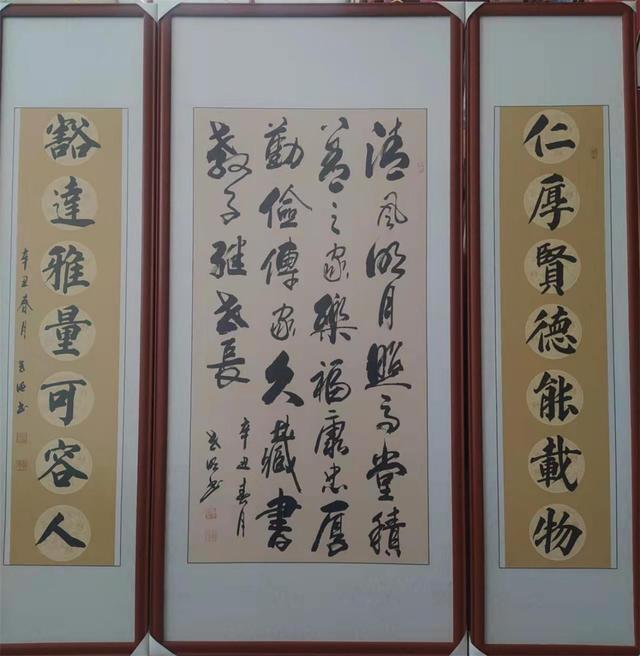 仁厚賢德能載物
清風明月照高堂積
善之家樂福康忠厚
勤儉傳家久藏書
教子继世長
辛丑春月
书
豁達雅量可容人
辛丑春月
书